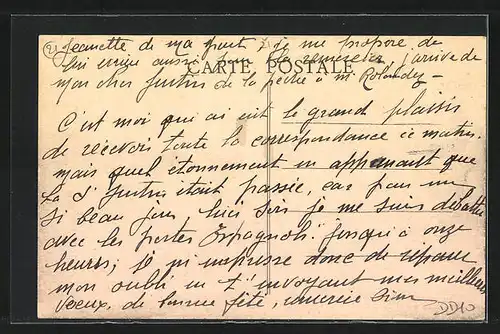 Jeannette de ma part & je me propose de
lui écrire aussi pour la remercier, j'arrive de
CARTE POSTALE
mon cher Justin de la pêche à
C'est moi qui ai eut le grand plaisir
de recevoir toute la correspondance ce matin,
mais quel étonnement en apprenant que
la St Justin était passée, car pour un
si beau jour hier soir je me suis débattu
avec les portes Espagnols jusqu'à onze
heures, je m'empresse donc de réparer
mon oubli en t'envoyant mes meilleurs
voeux de bonne fête,
DD10